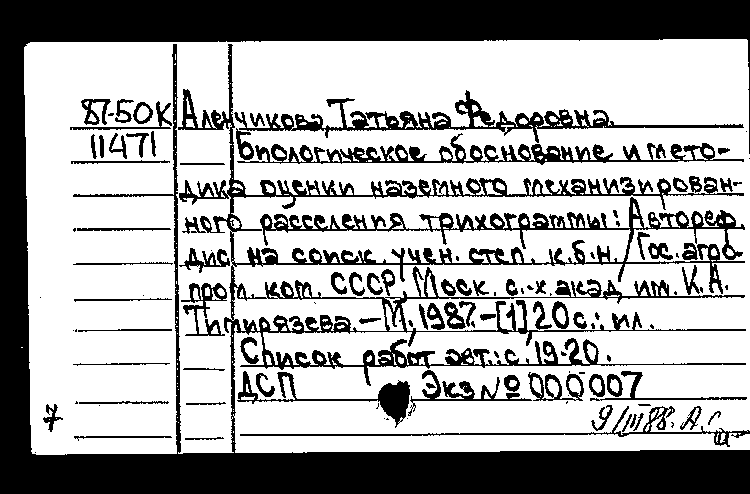 87-50К Аленчикова, Татьяна Федоровна.
11471 Биологическое обоснование и мето-
дика оценки наземного механизирован-
ного расселения трихограммы: Автореф.
дис. на соиск. учен. степ. к.б.н. / Гос. агро-
пром. ком. СССР, Моск. с.-х. акад. им. К.А.
Тимирязева. – М., 1987. – [1] 20 с.: ил.
Список работ авт.: с. 19-20.
ДСП Экз № 000007
7
9/III 88. А.С.